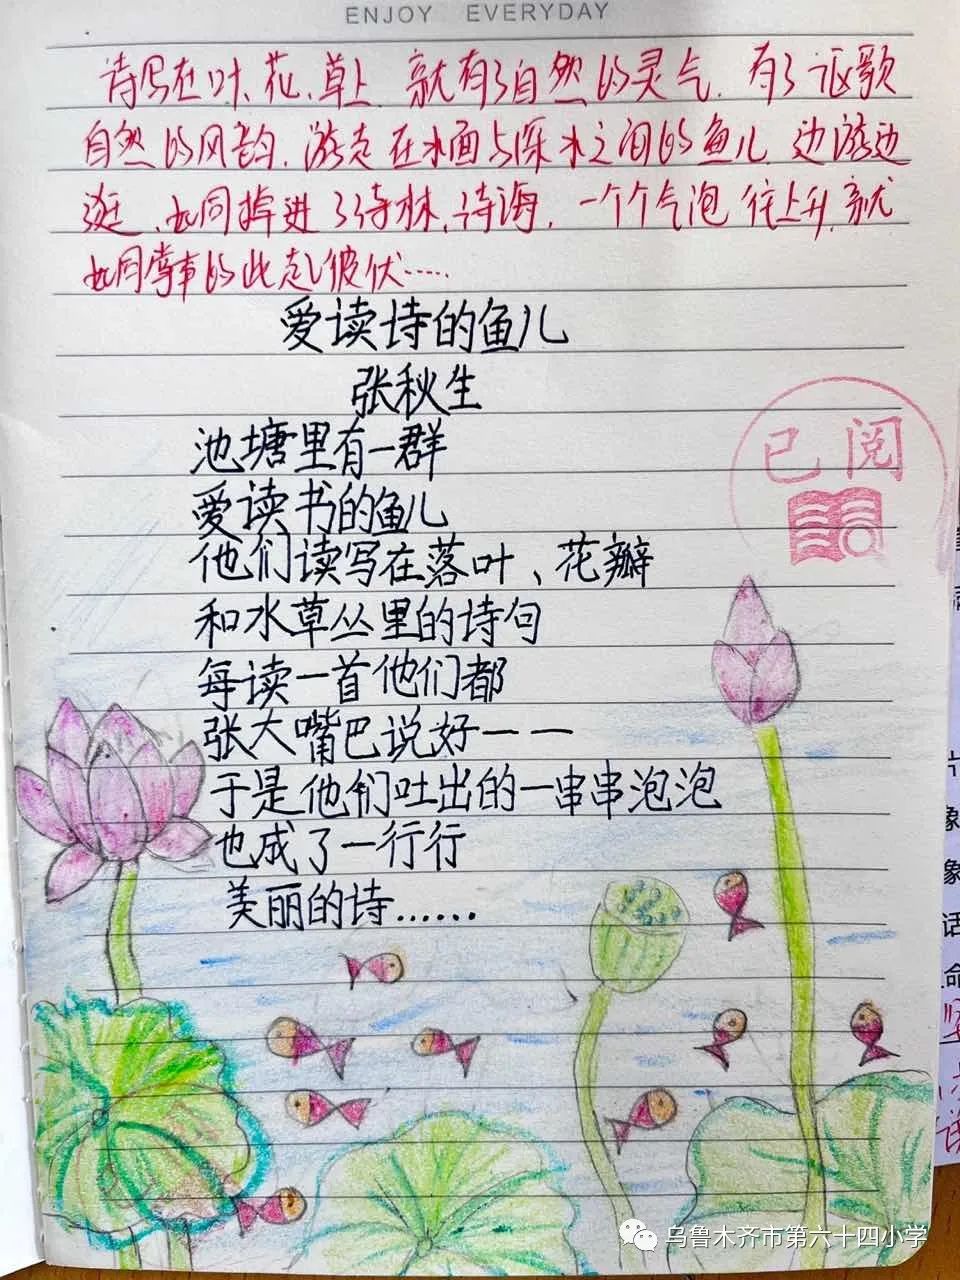 ENJOY EVERYDAY
诗写在叶、花、草上,就有了自然的灵气,有了讴歌
自然的风韵,游走在水面与深水之间的鱼儿,边游边
逛,如同掉进了诗林、诗海,一个个气泡往上升,就
如同掌声的此起彼伏……
爱读诗的鱼儿
张秋生
池塘里有一群
爱读书的鱼儿
他们读写在落叶、花瓣
和水草丛里的诗句
每读一首他们都
张大嘴巴说好——
于是他们吐出的一串串泡泡
也成了一行行
美丽的诗……
已阅
乌鲁木齐市第六十四小学